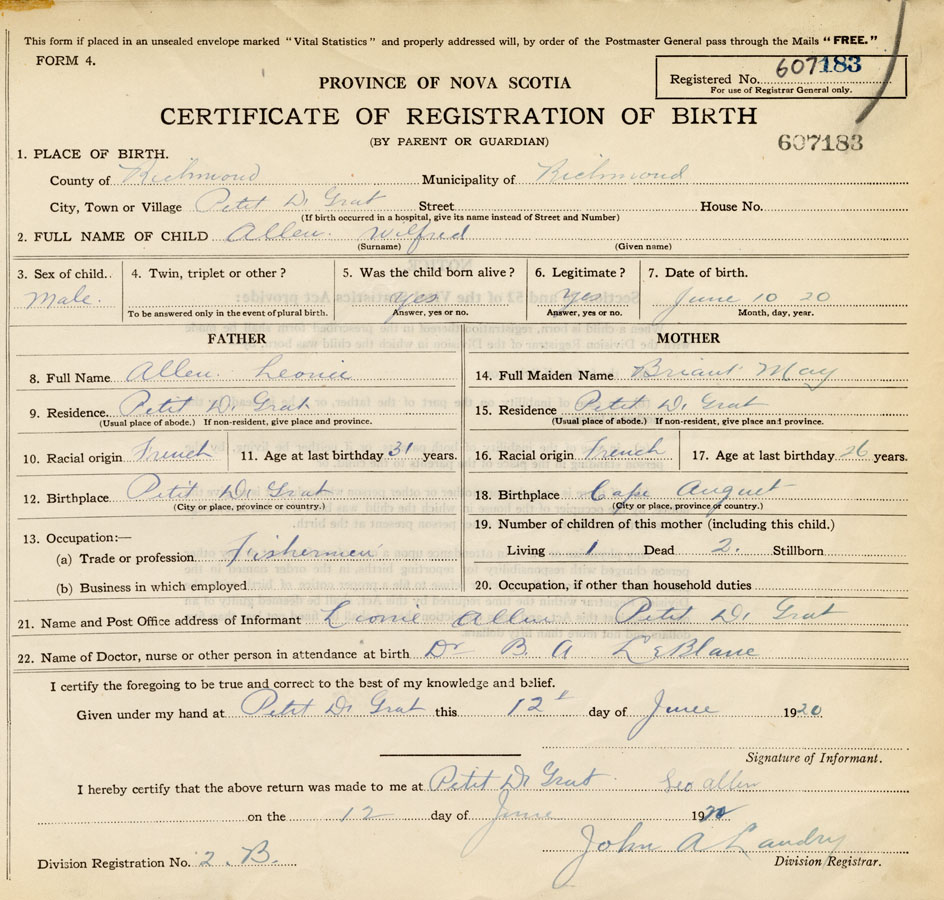 This form if placed in an unsealed envelope marked "Vital Statistics" and properly addressed will, by order of the Postmaster General pass through the Mails "FREE."
FORM 4.
Registered No. 607183
For use of Registrar General only.
PROVINCE OF NOVA SCOTIA
CERTIFICATE OF REGISTRATION OF BIRTH
(BY PARENT OR GUARDIAN)
607183
1. PLACE OF BIRTH.
County of Richmond Municipality of Richmond
City, Town or Village Petit D. Grat Street House No.
(If birth occurred in a hospital, give its name instead of Street and Number)
2. FULL NAME OF CHILD Allen Wilfred
(Surname) (Given name)
3. Sex of child. 4. Twin, triplet or other? 5. Was the child born alive? 6. Legitimate? 7. Date of birth.
Male. Yes Yes June 10 20
To be answered only in the event of plural birth. Answer, yes or no. Answer, yes or no. Month, day, year.
FATHER MOTHER
8. Full Name Allen Leonie 14. Full Maiden Name Briant May
9. Residence. Petit D. Grat 15. Residence Petit D. Grat
(Usual place of abode.) If non-resident, give place and province. (Usual place of abode.) If non-resident, give place and province.
10. Racial origin French 11. Age at last birthday 31 years. 16. Racial origin French 17. Age at last birthday 26 years.
12. Birthplace Petit D. Grat 18. Birthplace Cape Auguet
(City or place, province or country.) (City or place, province or country.)
13. Occupation:— 19. Number of children of this mother (including this child.)
(a) Trade or profession Fishermen Living 1 Dead 2. Stillborn
(b) Business in which employed 20. Occupation, if other than household duties
21. Name and Post Office address of Informant Leonie Allen Petit D. Grat
22. Name of Doctor, nurse or other person in attendance at birth Dr B A LeBlanc
I certify the foregoing to be true and correct to the best of my knowledge and belief.
Given under my hand at Petit D. Grat this 12 day of June 1920
Signature of Informant.
I hereby certify that the above return was made to me at Petit D. Grat Geo Allen
on the 12 day of June 1920
John A Landry
Division Registration No. 2. B. Division Registrar.